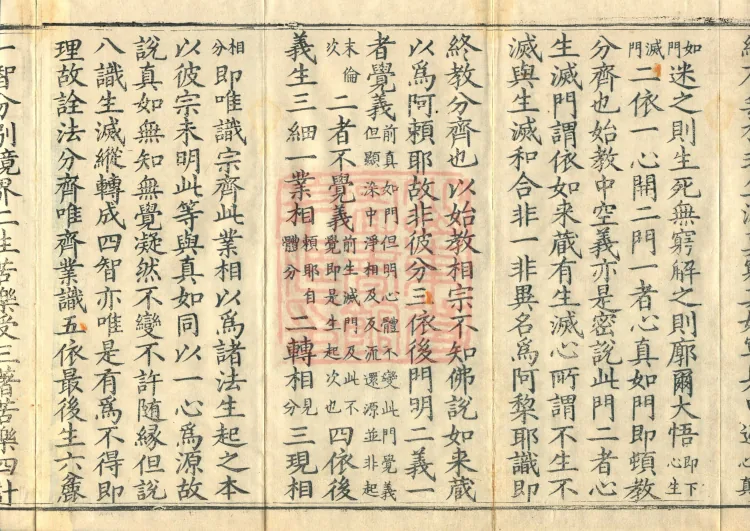 如門迷之則生死無窮解之則廓爾大悟即下心生
滅門二依一心開二門一者心真如門即頓教
分齊也始教中空義亦是密說此門二者心
生滅門謂依如来蔵有生滅心所謂不生不
滅與生滅和合非一非異名爲阿棃耶識即
終教分齊也以始教相宗不知佛說如来蔵
以爲阿頼耶故非彼分三依後門明二義一
者覺義前真如門但明心體不變此門覺義但顯染中淨相及反流還源並非起
末倫次二者不覺義前生滅門及此不覺即是生起次也四依後
義生三細一業相頼耶自體分二轉相見分三現相
相分即唯識宗齊此業相以爲諸法生起之本
以彼宗未明此等與真如同以一心爲源故
說真如無知無覺凝然不變不許随縁但說
八識生滅縱轉成四智亦唯是有爲不得即
理故詮法分齊唯齊業識五依最後生六麁
一智分別境界二生苦樂受三著苦樂四計